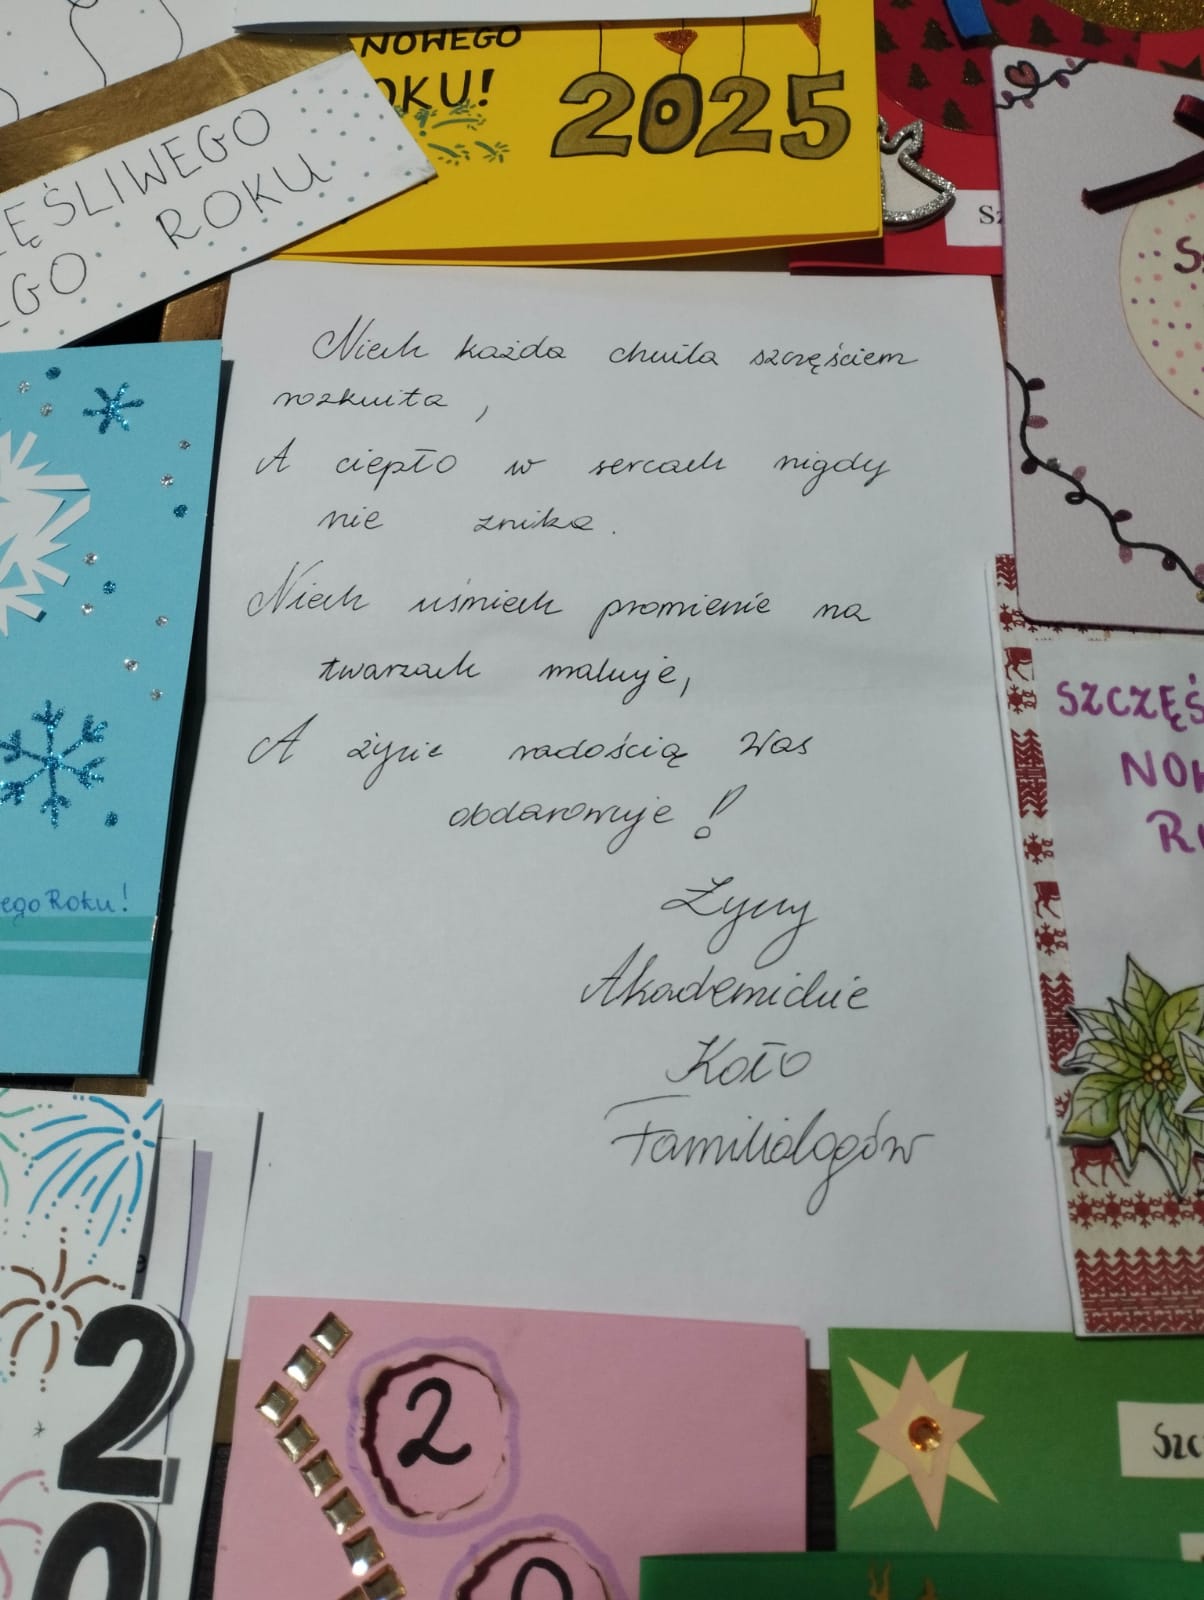 NOWEGO
ROKU!
2025
ĘŚLIWEGO
EGO ROKU
Sz
Niech każda chwila szczęściem
rozkwita,
A ciepło w sercach nigdy
nie znika.
Niech uśmiech promienie na
twarzach maluje,
A życie radością Was
obdarowuje!
Życzy
Akademickie
Koło
Familiologów
SZCZĘŚ
NOW
R
ego Roku!
2
0
2
0
Szc